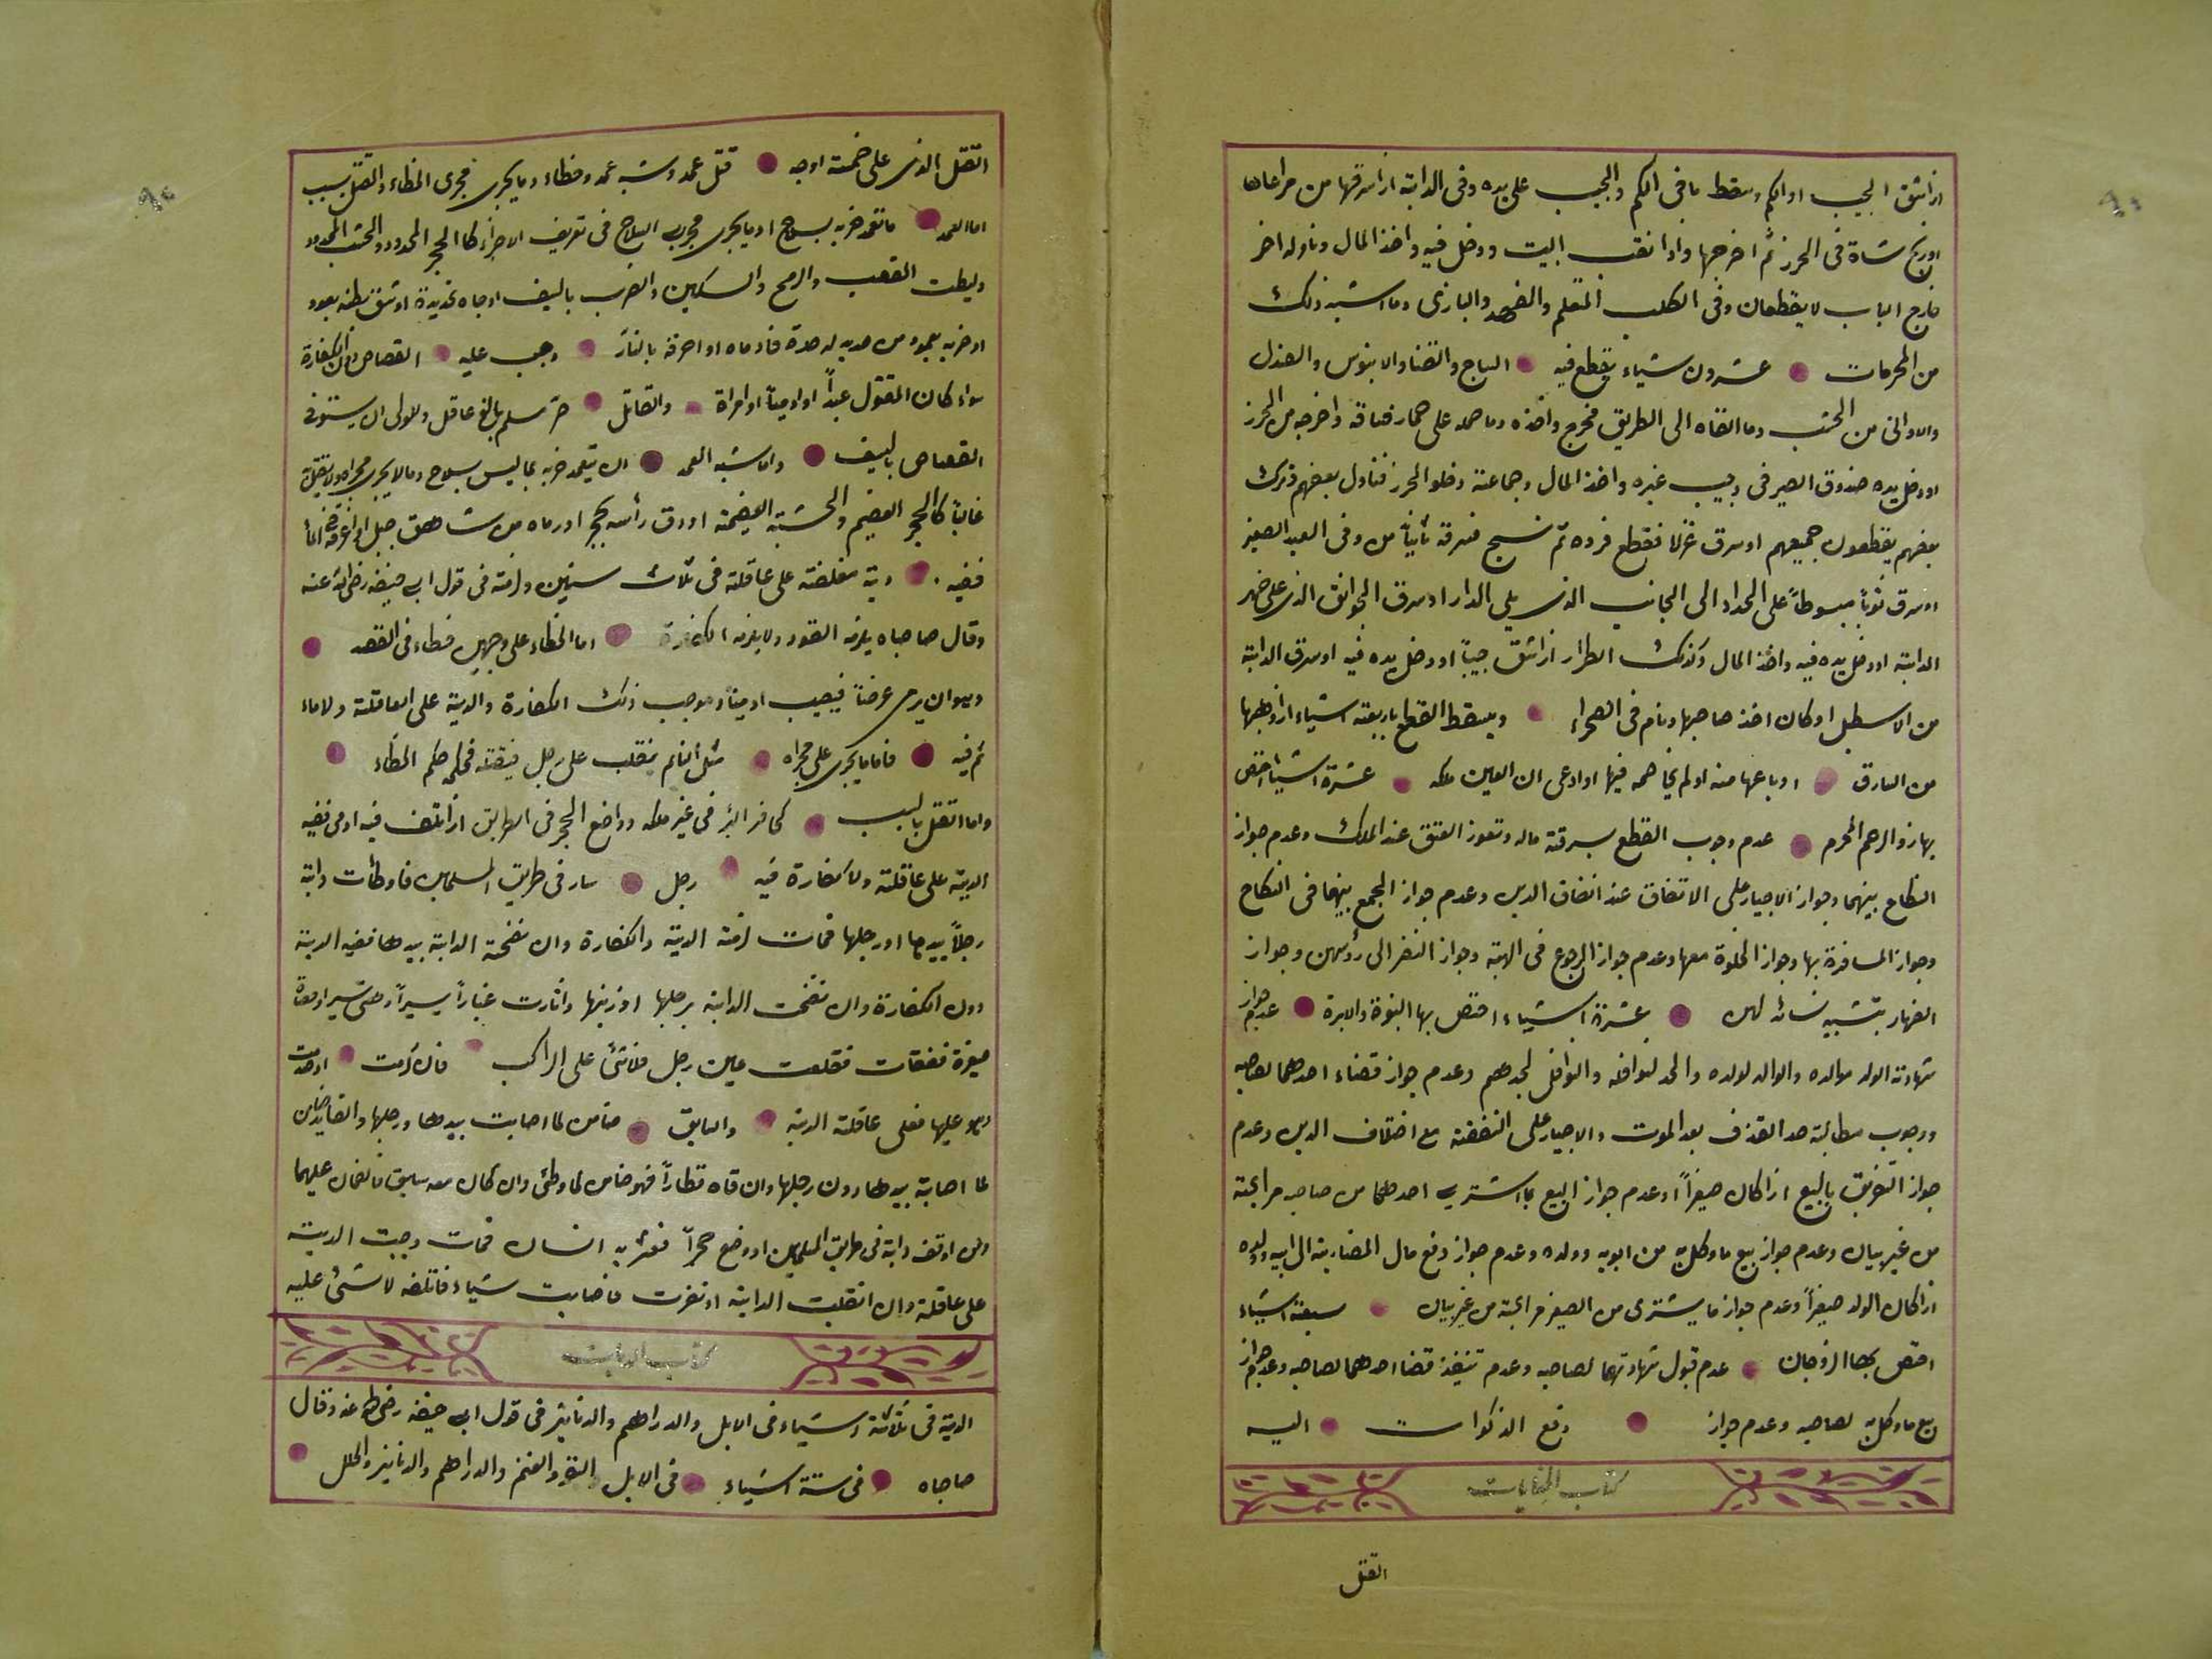 اذا شق الجيب او الكم وسقط ما فى الكم والجيب على يده وفى الدابة اذا سرقها من مراعاها
او ذبح شاة فى الحرز ثم اخرجها واذا نقب البيت ودخل فيه واخذ المال وناوله اخر
خارج الباب لا يقطعان وفى الكلب المتعلم والفهد والبازى وما اشبه ذلك
من المحرمات عشرون شياء يقطع فيه الساج والقنا والابنوس والصندل
والاوانى من الخشب وما القاه الى الطريق فخرج واخذه وما حمله على حمار فساقه واخرجه من الحرز
او دخل يده صندوق الصيرفى وجيب غيره واخذ المال وجماعة دخلو الحرز فتناول بعضهم وترك
بعضهم يقطعون جميعهم او سرق غزلا فقطع فرده ثم نسج فسرقه ثانياً من وفى العبد الصغير
او سرق ثوباً مبسوطاً على الجدار الى الجانب الذى يلى الدار او سرق الجوالق الذى على ظهر
الدابة او دخل يده فيه واخذ المال وكذلك الطرار اذا شق جيباً او دخل يده فيه او سرق الدابة
من الاسطبل او كان اخذ صاحبها ونام فى الصحراء ويسقط القطع باربعة اشياء اذا وهبها
من السارق او باعها منه او لم يخاصمه فيها او ادعى ان العين ملكه عشرة اشياء اختص
بها ذو الرحم المحرم عدم وجوب القطع بسرقة ماله ونفوذ العتق عند الملك وعدم جواز
النكاح بينهما وجواز الاجبار على الانفاق عند اتفاق الدين وعدم جواز الجمع بينهما فى النكاح
وجواز المسافرة بها وجواز الخلوة معها وعدم جواز الرجوع فى الهبة وجواز النضر الى رؤسهن وجواز
الضهار بتشبيه نسائه لهن عشرة اشياء اختص بها البنوة والابرة عدم جواز
شهادته الولد لوالده والوالد لولده والجد لنوافله والنوافل لجدهم وعدم جواز قضاء احدهما لصاحبه
ووجوب مطالبة حد القذف بعد الموت والاجبار على النفقة مع اختلاف الدين وعدم
جواز التفريق بالبيع اذا كان صغيراً او عدم جواز البيع بما اشترى احدهما من صاحبه مرابحة
من غير بيان وعدم جواز بيع ما وكل به من ابويه وولده وعدم جواز دفع مال المضاربة الى ابيه وولده
اذا كان الولد صغيراً وعدم جواز ما يشترى من الصغير مرابحة من غير بيان سبعة اشياء
اختص بها الزوجان عدم قبول شهادتهما لصاحبه وعدم تنفيذ قضا احدهما لصاحبه وعدم جواز
بيع ما وكل به لصاحبه وعدم جواز دفع الذكوات اليه
كتاب الجنايات
القتل
القتل الذى على خمسة اوجه قتل عمد وشبه عمد وخطاء وما يجرى مجرى الخطاء والقتل بسبب
اما العمد ما تعمد ضربه بسلاح او ما يجرى مجرى السلاح فى تفريق الاجزاء كا الحجر المحدود والخشب المحدود
وليطت القصب والرمح والسكين والضرب بالسيف او جاه بحديدة او شق بطنه بعود
او ضربه بعمود من حديد له حدة فادماه او احرقه بالنار وجب عليه القصاص دون الكفارة
سواء كان المقتول عبداً او ادمياً او امراة والقاتل حر مسلم بالغ عاقل وللولى ان يستوفى
القصاص بالسيف واما شبه العمد ان يتعمد ضربه بما ليس بسلاح وما لا يجرى مجراه ولا يقتل به
غالباً كا الحجر العضيم والخشبة العضيمة او دق رأسه بحجر او رماه من شاهق جبل او اغرقه فى الماء
ففيه دية مغلضة على عاقلة فى ثلاث سنين ولزمته فى قول ابى حنيفه رضى الله عنه
وقال صاحباه يلزمه القود ولا يلزمه الكفارة اما الخطاء على وجهين خطاء فى القصد
وهو ان يرمى عرضاً فيصيب ادمياً وموجب ذلك الكفارة والدية على العاقلة ولا ماء
ثم فيه فاما ما يجرى على مجراه مثل النايم ينقلب على رجل فيقتله فحكمه حكم الخطاء
واما القتل بالسبب كحافر البئر فى غير ملكه وواضع الحجر فى الطريق اذا تلف فيه ادمى ففيه
الدية على عاقلته ولا كفارة فيه رجل سار فى طريق المسلمين فاوطأت دابة
رجلاً بيدها او رجلها فمات لزمته الدية والكفارة وان نفحة الدابة بيدها ففيه الدية
دون الكفارة وان نفحت الدابة برجلها او ذنبها واثارت غباراً يسيراً وحتى يسير او حصاة
صغيرة ففقات فقلعت عين رجل فلا شئ على الراكب فان كدمت او صدمت
وهو عليها فعلى عاقلته الدية والسايق ضامن لما اصابت بيدها ورجلها والقايد ضامن
لما اصابة بيدها دون رجلها وان قاد قطاراً فهو ضامن لما وطئ وان كان معه سايق فالضمان عليهما
ومن اوقف دابة فى طريق المسلمين او وضع حجراً فعثر به انسان فمات وجبت الدية
على عاقلة وان انقلبت الدابة او نفرت فاصابت شياء فاتلفه لا شئ عليه
كتاب الديات
الدية فى ثلاثة اشياء فى الابل والدراهم والدنانير فى قول ابى حنيفه رضى الله عنه وقال
صاحباه فى ستة اشياء فى الابل والبقر والغنم والدراهم والدنانير والحلل